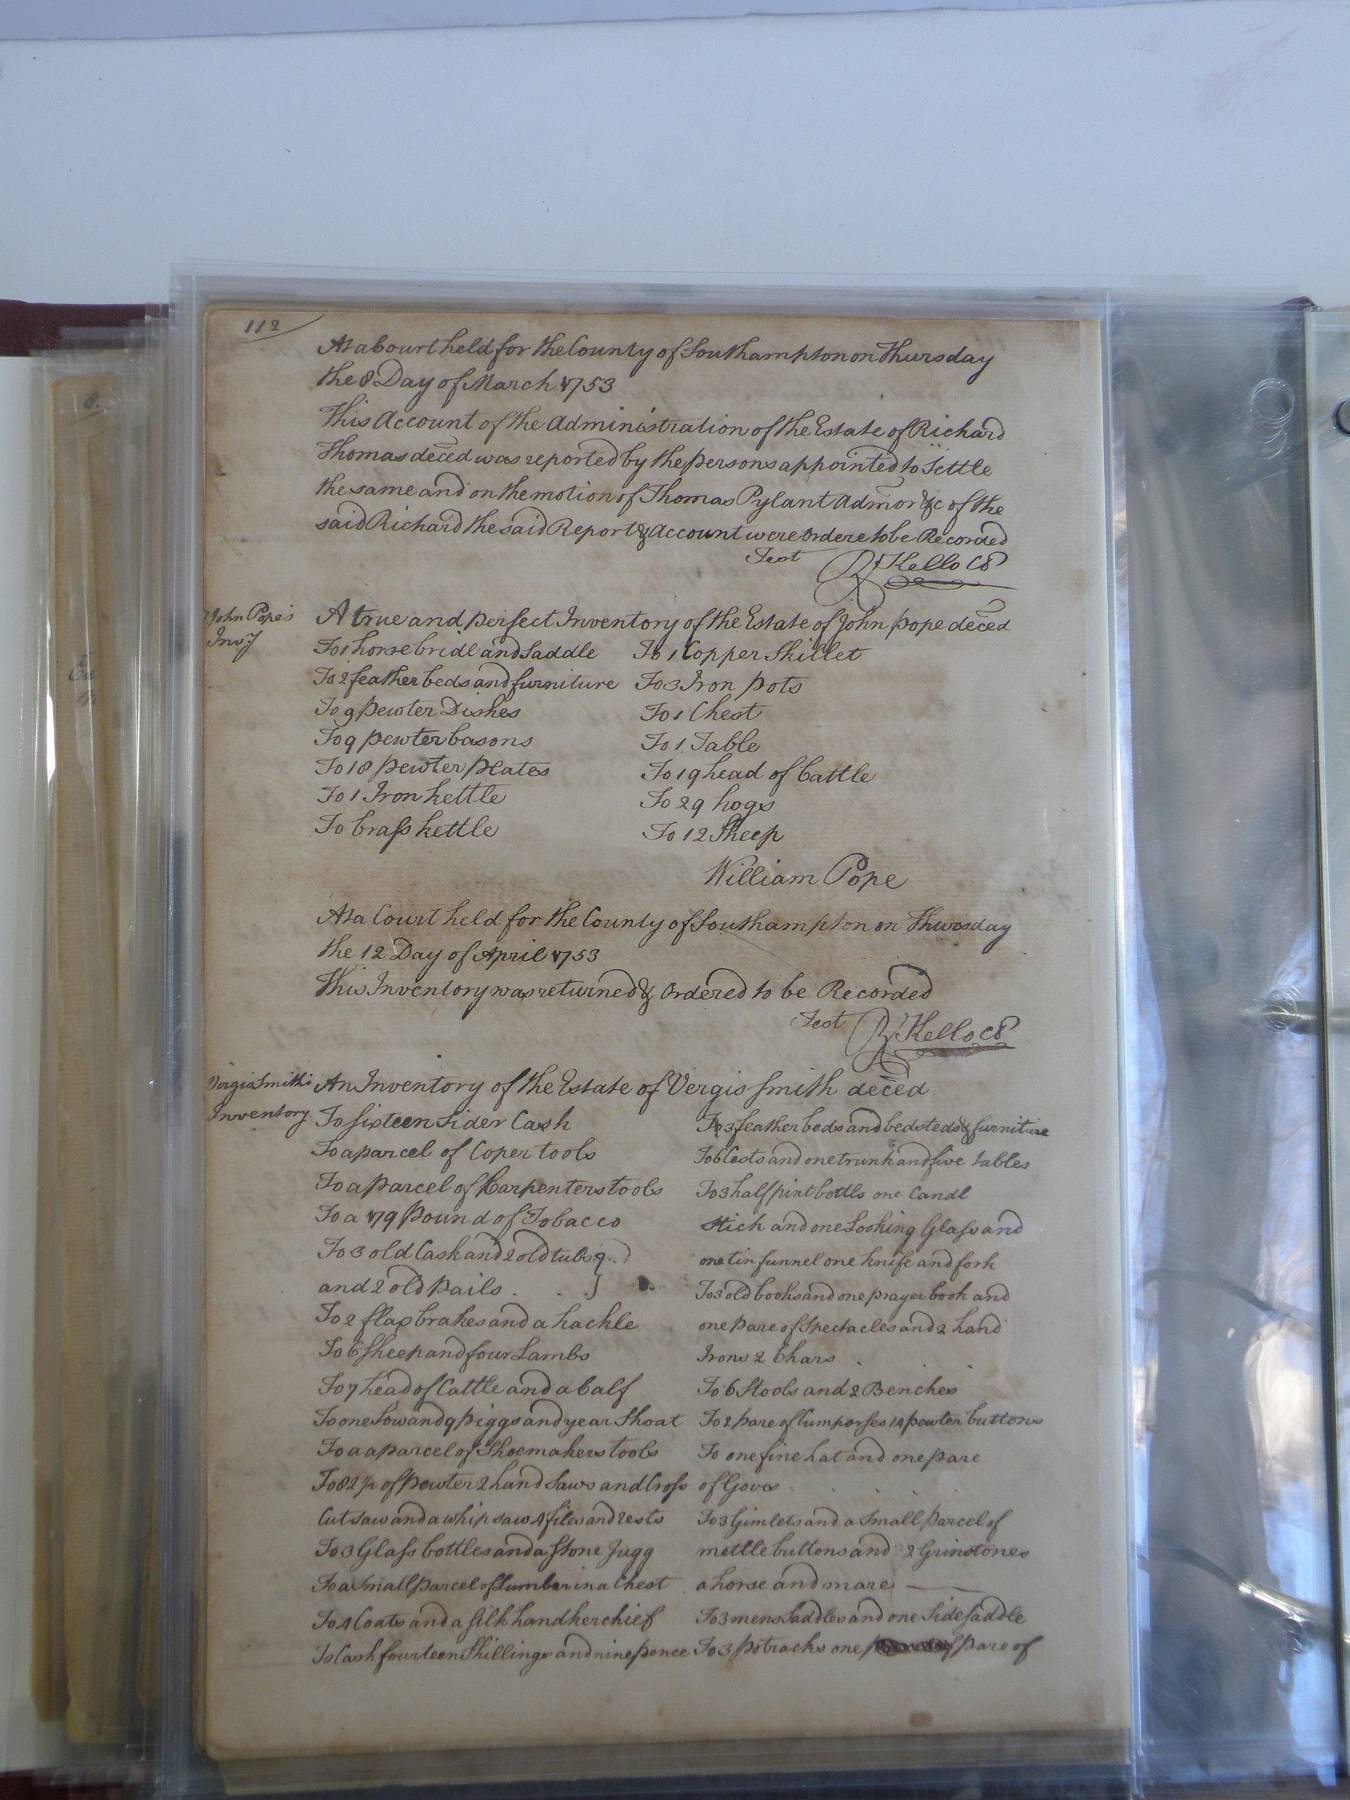 112
At a Court held for the County of Southampton on Thursday
the 8 Day of March 1753
This Account of the Administration of the Estate of Richard
Thomas deced was reported by the persons appointed to Settle
the same and on the motion of Thomas Pylant Admor &c of the
said Richard the said Report & Account were Ordere to be Recorded
Test R Kello CS
John Pope's
Invy
A true and perfect Inventory of the Estate of John pope deced
To 1 horse bridle and Saddle
To 2 feather beds and furniture
To 9 Pewter Dishes
To 9 pewter basons
To 18 pewter plates
To 1 Iron kettle
To brass kettle
To 1 Copper Skillet
To 3 Iron pots
To 1 Chest
To 1 Table
To 19 head of Cattle
To 29 hogs
To 12 Sheep
William Pope
At a Court held for the County of Southampton on Thursday
the 12 Day of April 1753
This Inventory was returned & Ordered to be Recorded
Test R Kello CS
Virgis Smith's
Inventory
An Inventory of the Estate of Vergis Smith deced
To sixteen Sider Cask
To a parcel of Coper tools
To a Parcel of Carpenters tools
To a 179 Pound of Tobacco
To 3 old Cask and 2 old tubs
and 2 old Pails
To 2 flax brakes and a hackle
To 6 Sheep and four Lambs
To 7 head of Cattle and a Calf
To one Sow and 9 piggs and year Shoat
To a a parcel of Shoemakers tools
To 82 1/2 of pewter 2 hand Saws and Cross
Cut saw and a whip saw 4 files and rests
To 3 Glass bottles and a Stone Jugg
To a Small Parcel of Lumber in a Chest
To 4 Coats and a Silk handkerchief
To Cash fourteen Shillings and nine pence
To 3 feather beds and bedsteds & furniture
To 6 Cests and one trunk and five tables
To 3 half pint bottls one Candl
Stick and one Looking Glass and
one tin funnel one knife and fork
To 3 old books and one prayer book and
one Pare of Spectacles and 2 hand
Irons 2 Chars
To 6 Stools and 2 Benches
To 2 Pare of Cumpasses 14 pewter buttons
To one fine hat and one pare
of Goves
To 3 Gimlets and a Small Parcel of
mettle buttons and 2 Grinstones
a horse and mare
To 3 mens Saddles and one Side Saddle
To 3 potracks one Pare of